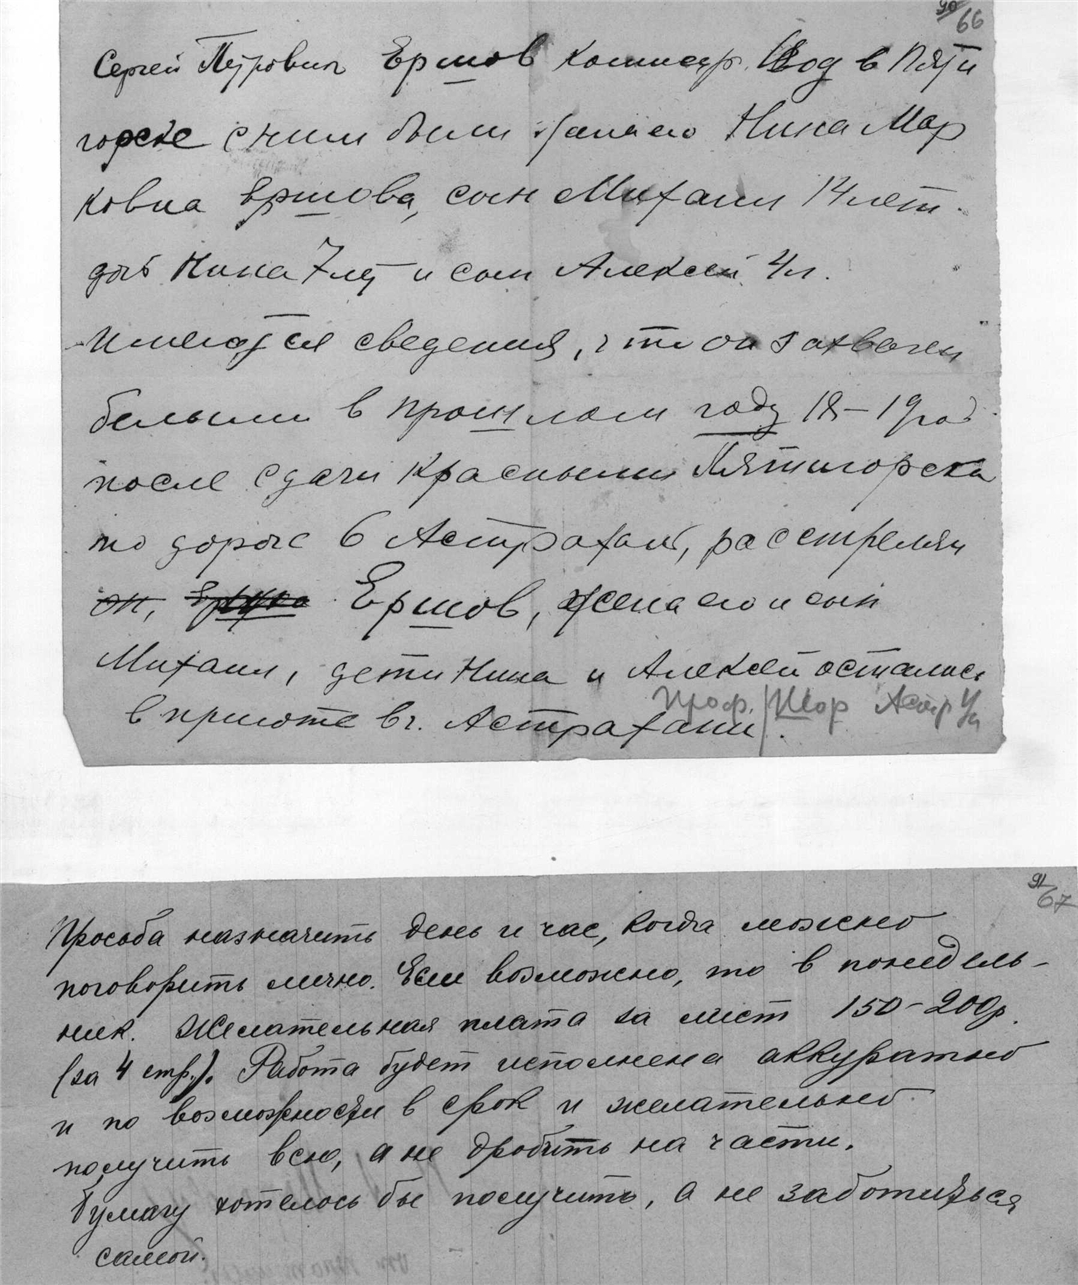 90
66
Сергей Петрович Ершов комиссар вод в Пяти
горске с ним были жена его Нина Мар
ковна Ершова, сын Михаил 14 лет.
дочь Нина 7 лет и сын Алексей 4 л.
Имеются сведения, что он захвачен
белыми в прошлом году 18–19 год
после сдачи красными Пятигорска
по дороге в Астрахань, расстрелян
он, Ершов, жена его и сын
Михаил, дети Нина и Алексей остались
в приюте в г. Астрахани.
Проф. Шор Астр Ун
91
67
Просьба назначить день и час, когда можно
поговорить лично. Если возможно, то в понедель-
ник. Желательная плата за лист 150–200р.
(за 4 стр.). Работа будет исполнена аккуратно
и по возможности в срок и желательно
получить всю, а не дробить на части.
Бумагу хотелось бы получить, а не заботиться
самой.